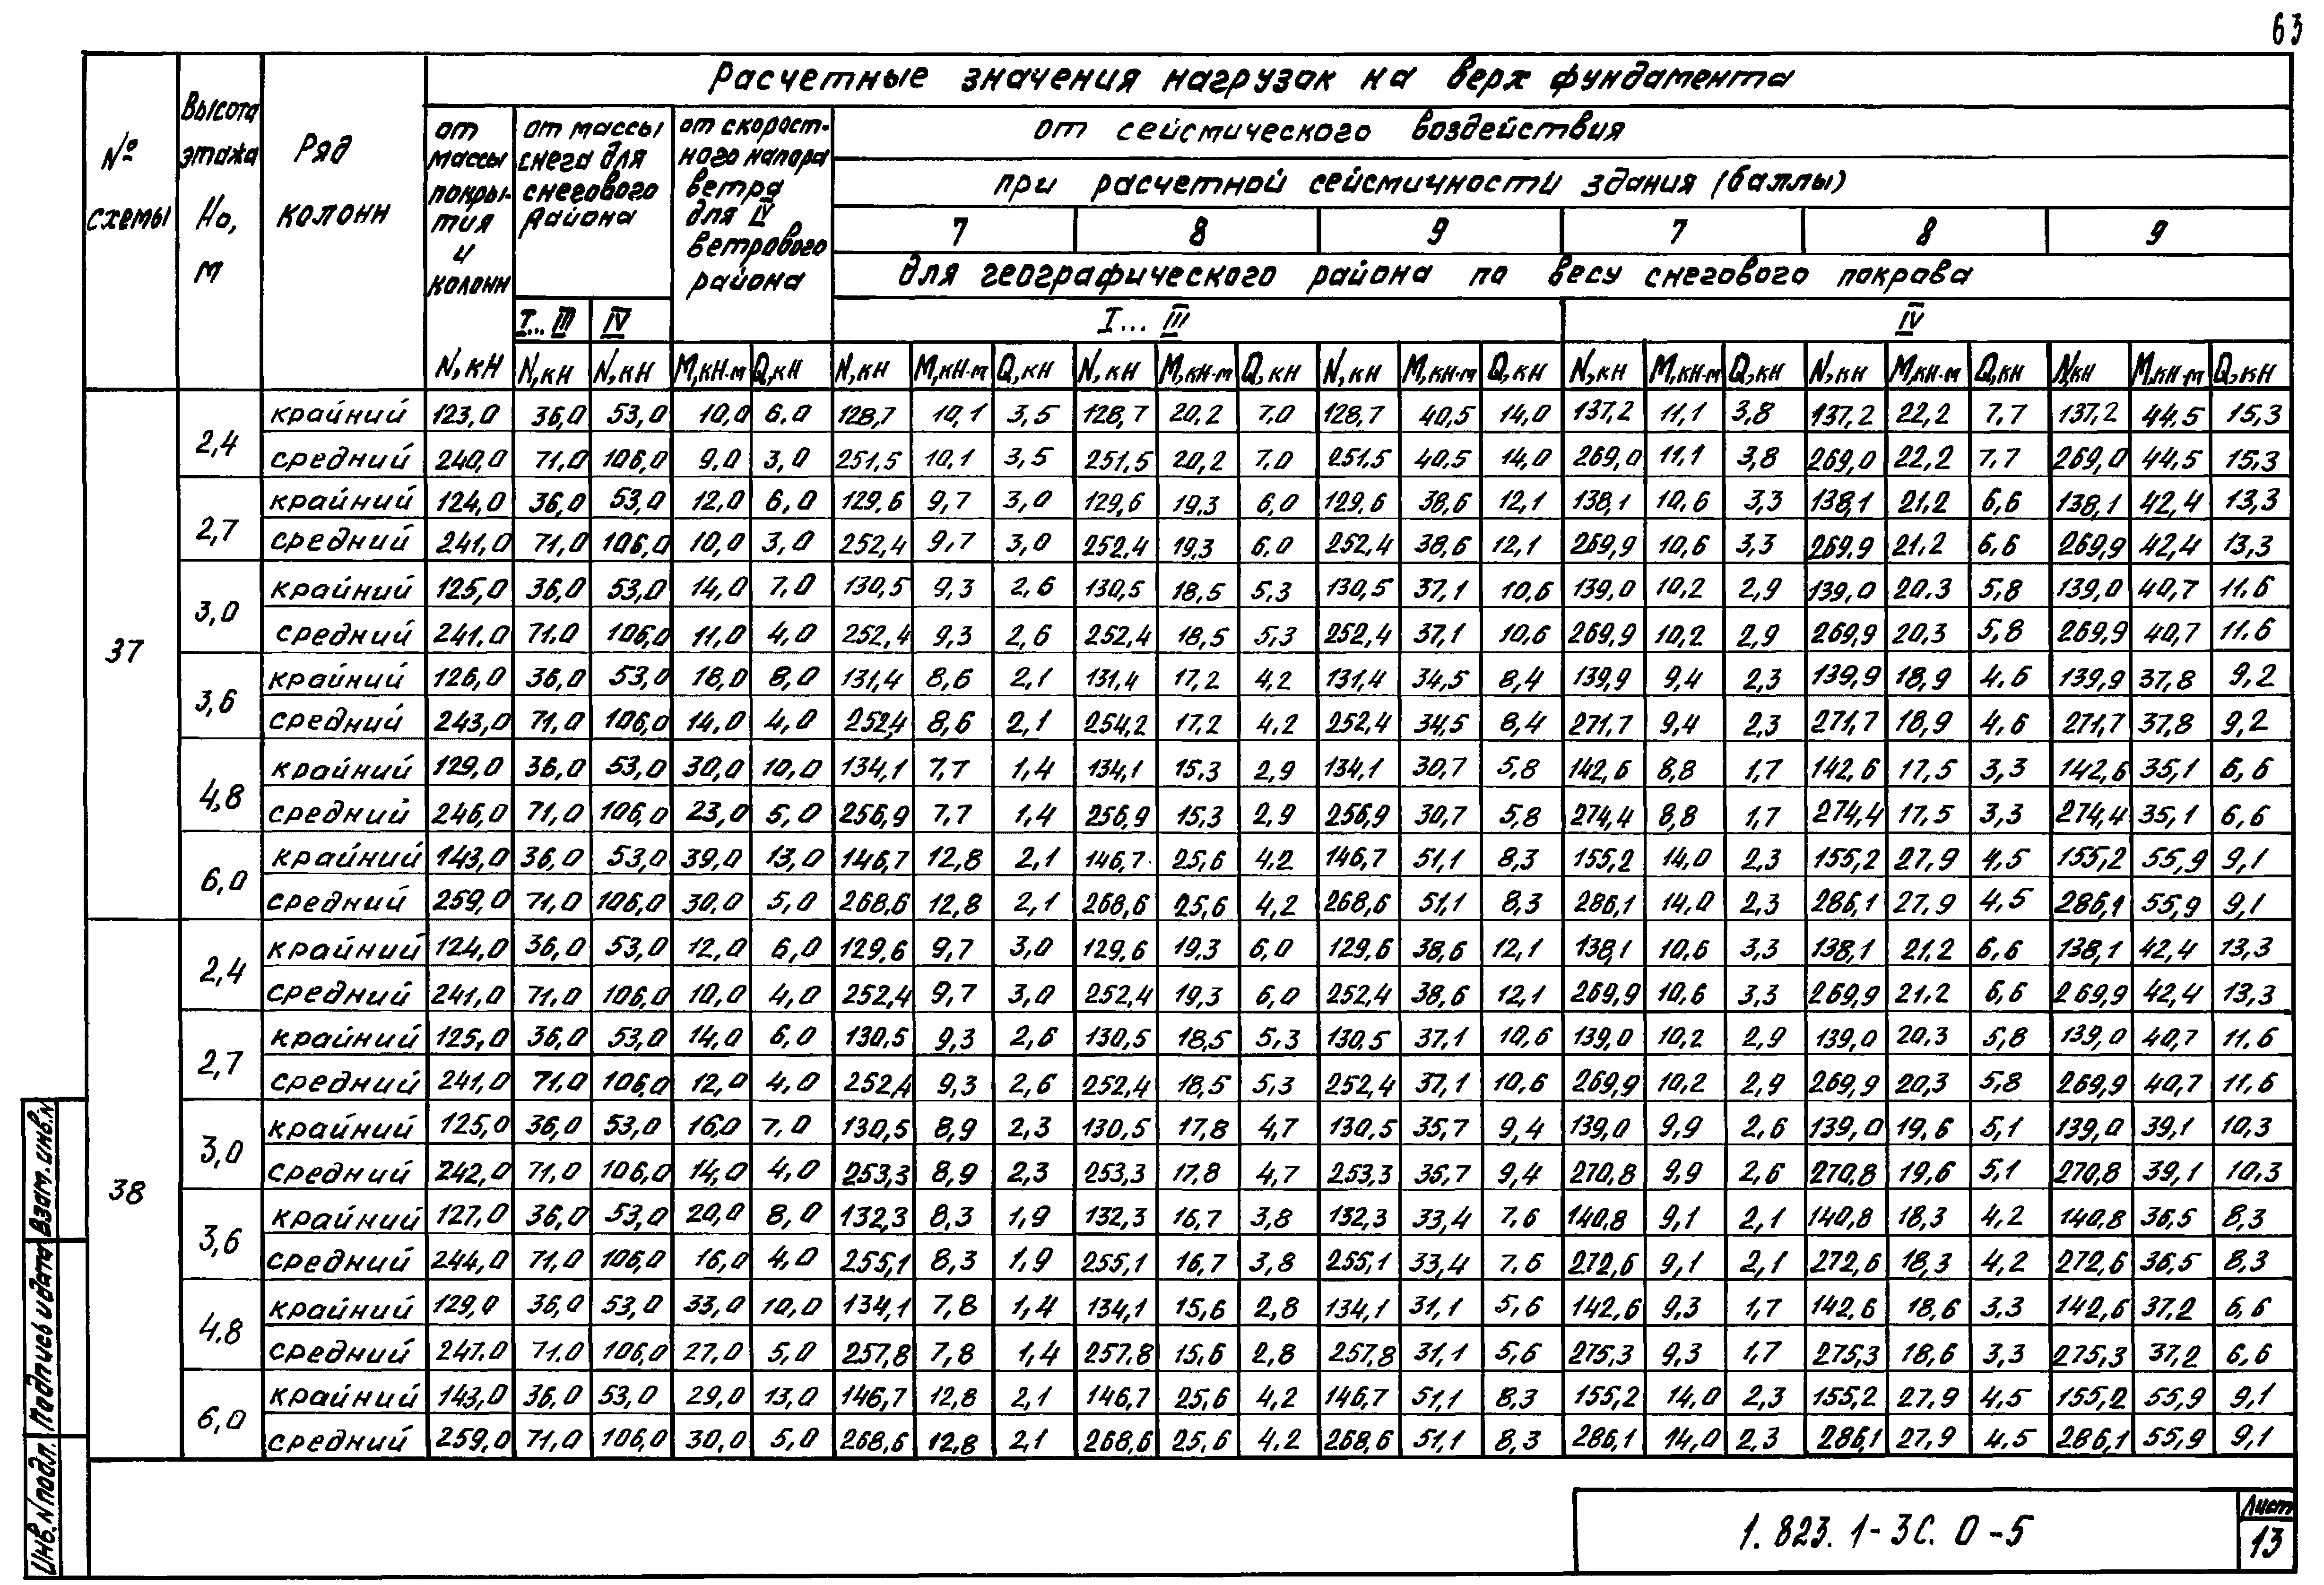 63
Расчетные значения нагрузок на верх фундамента
№ схемы
Высота этажа Но, м
Ряд колонн
от массы покры-тия и колонн
от массы снега для снегового района
от скорост-ного напора ветра для IV ветрового района
от сейсмического воздействия
при расчетной сейсмичности здания (баллы)
7 8 9 7 8 9
для географического района по весу снегового покрова
I... III IV I... III IV
N,кН N,кН N,кН М,кН·м Q,кН N,кН М,кН·м Q,кН N,кН М,кН·м Q,кН N,кН М,кН·м Q,кН N,кН М,кН·м Q,кН N,кН М,кН·м Q,кН N,кН М,кН·м Q,кН
37
2,4 крайний 123,0 36,0 53,0 10,0 6,0 128,7 10,1 3,5 128,7 20,2 7,0 128,7 40,5 14,0 137,2 11,1 3,8 137,2 22,2 7,7 137,2 44,5 15,3
средний 240,0 71,0 106,0 9,0 3,0 251,5 10,1 3,5 251,5 20,2 7,0 251,5 40,5 14,0 269,0 11,1 3,8 269,0 22,2 7,7 269,0 44,5 15,3
2,7 крайний 124,0 36,0 53,0 12,0 6,0 129,6 9,7 3,0 129,6 19,3 6,0 129,6 38,6 12,1 138,1 10,6 3,3 138,1 21,2 6,6 138,1 42,4 13,3
средний 241,0 71,0 106,0 10,0 3,0 252,4 9,7 3,0 252,4 19,3 6,0 252,4 38,6 12,1 269,9 10,6 3,3 269,9 21,2 6,6 269,9 42,4 13,3
3,0 крайний 125,0 36,0 53,0 14,0 7,0 130,5 9,3 2,6 130,5 18,5 5,3 130,5 37,1 10,6 139,0 10,2 2,9 139,0 20,3 5,8 139,0 40,7 11,6
средний 241,0 71,0 106,0 11,0 4,0 252,4 9,3 2,6 252,4 18,5 5,3 252,4 37,1 10,6 269,9 10,2 2,9 269,9 20,3 5,8 269,9 40,7 11,6
3,6 крайний 126,0 36,0 53,0 18,0 8,0 131,4 8,6 2,1 131,4 17,2 4,2 131,4 34,5 8,4 139,9 9,4 2,3 139,9 18,9 4,6 139,9 37,8 9,2
средний 243,0 71,0 106,0 14,0 4,0 252,4 8,6 2,1 254,2 17,2 4,2 252,4 34,5 8,4 271,7 9,4 2,3 271,7 18,9 4,6 271,7 37,8 9,2
4,8 крайний 129,0 36,0 53,0 30,0 10,0 134,1 7,7 1,4 134,1 15,3 2,9 134,1 30,7 5,8 142,6 8,8 1,7 142,6 17,5 3,3 142,6 35,1 6,6
средний 246,0 71,0 106,0 23,0 5,0 256,9 7,7 1,4 256,9 15,3 2,9 256,9 30,7 5,8 274,4 8,8 1,7 274,4 17,5 3,3 274,4 35,1 6,6
6,0 крайний 143,0 36,0 53,0 39,0 13,0 146,7 12,8 2,1 146,7 25,6 4,2 146,7 51,1 8,3 155,2 14,0 2,3 155,2 27,9 4,5 155,2 55,9 9,1
средний 259,0 71,0 106,0 30,0 5,0 268,6 12,8 2,1 268,6 25,6 4,2 268,6 51,1 8,3 286,1 14,0 2,3 286,1 27,9 4,5 286,1 55,9 9,1
38
2,4 крайний 124,0 36,0 53,0 12,0 6,0 129,6 9,7 3,0 129,6 19,3 6,0 129,6 38,6 12,1 138,1 10,6 3,3 138,1 21,2 6,6 138,1 42,4 13,3
средний 241,0 71,0 106,0 10,0 4,0 252,4 9,7 3,0 252,4 19,3 6,0 252,4 38,6 12,1 269,9 10,6 3,3 269,9 21,2 6,6 269,9 42,4 13,3
2,7 крайний 125,0 36,0 53,0 14,0 6,0 130,5 9,3 2,6 130,5 18,5 5,3 130,5 37,1 10,6 139,0 10,2 2,9 139,0 20,3 5,8 139,0 40,7 11,6
средний 241,0 71,0 106,0 12,0 4,0 252,4 9,3 2,6 252,4 18,5 5,3 252,4 37,1 10,6 269,9 10,2 2,9 269,9 20,3 5,8 269,9 40,7 11,6
3,0 крайний 125,0 36,0 53,0 16,0 7,0 130,5 8,9 2,3 130,5 17,8 4,7 130,5 35,7 9,4 139,0 9,9 2,6 139,0 19,6 5,1 139,0 39,1 10,3
средний 242,0 71,0 106,0 14,0 4,0 253,3 8,9 2,3 253,3 17,8 4,7 253,3 35,7 9,4 270,8 9,9 2,6 270,8 19,6 5,1 270,8 39,1 10,3
3,6 крайний 127,0 36,0 53,0 20,0 8,0 132,3 8,3 1,9 132,3 16,7 3,8 132,3 33,4 7,6 140,8 9,1 2,1 140,8 18,3 4,2 140,8 36,5 8,3
средний 244,0 71,0 106,0 16,0 4,0 255,1 8,3 1,9 255,1 16,7 3,8 255,1 33,4 7,6 272,6 9,1 2,1 272,6 18,3 4,2 272,6 36,5 8,3
4,8 крайний 129,0 36,0 53,0 33,0 10,0 134,1 7,8 1,4 134,1 15,6 2,8 134,1 31,1 5,6 142,6 9,3 1,7 142,6 18,6 3,3 142,6 37,2 6,6
средний 247,0 71,0 106,0 27,0 5,0 257,8 7,8 1,4 257,8 15,6 2,8 257,8 31,1 5,6 275,3 9,3 1,7 275,3 18,6 3,3 275,3 37,2 6,6
6,0 крайний 143,0 36,0 53,0 29,0 13,0 146,7 12,8 2,1 146,7 25,6 4,2 146,7 51,1 8,3 155,2 14,0 2,3 155,2 27,9 4,5 155,2 55,9 9,1
средний 259,0 71,0 106,0 30,0 5,0 268,6 12,8 2,1 268,6 25,6 4,2 268,6 51,1 8,3 286,1 14,0 2,3 286,1 27,9 4,5 286,1 55,9 9,1
Инв.№подл. Подпись и дата Взам.инв.№
1.823.1-3С.0-5
Лист
13